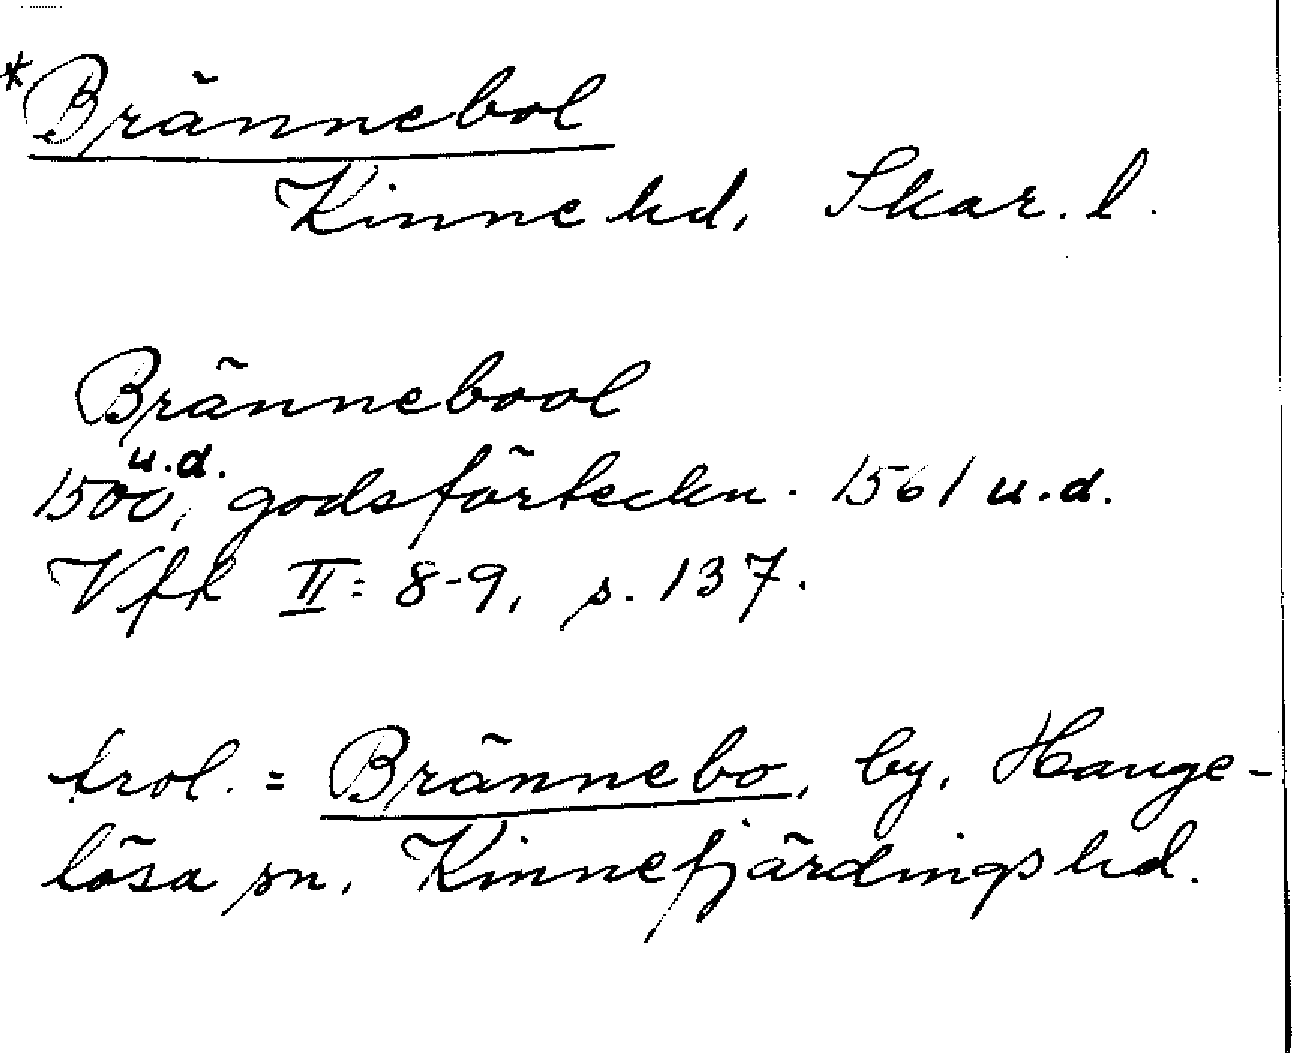 *Brännebol
Kinne hd, Skar. l.
Brännebool
u.d.
1500, godsförteckn. 1561 u.d.
Vfk II: 8-9, s. 137.
trol. = Brännebo, by, Hange-
lösa sn, Kinnefjärdings hd.